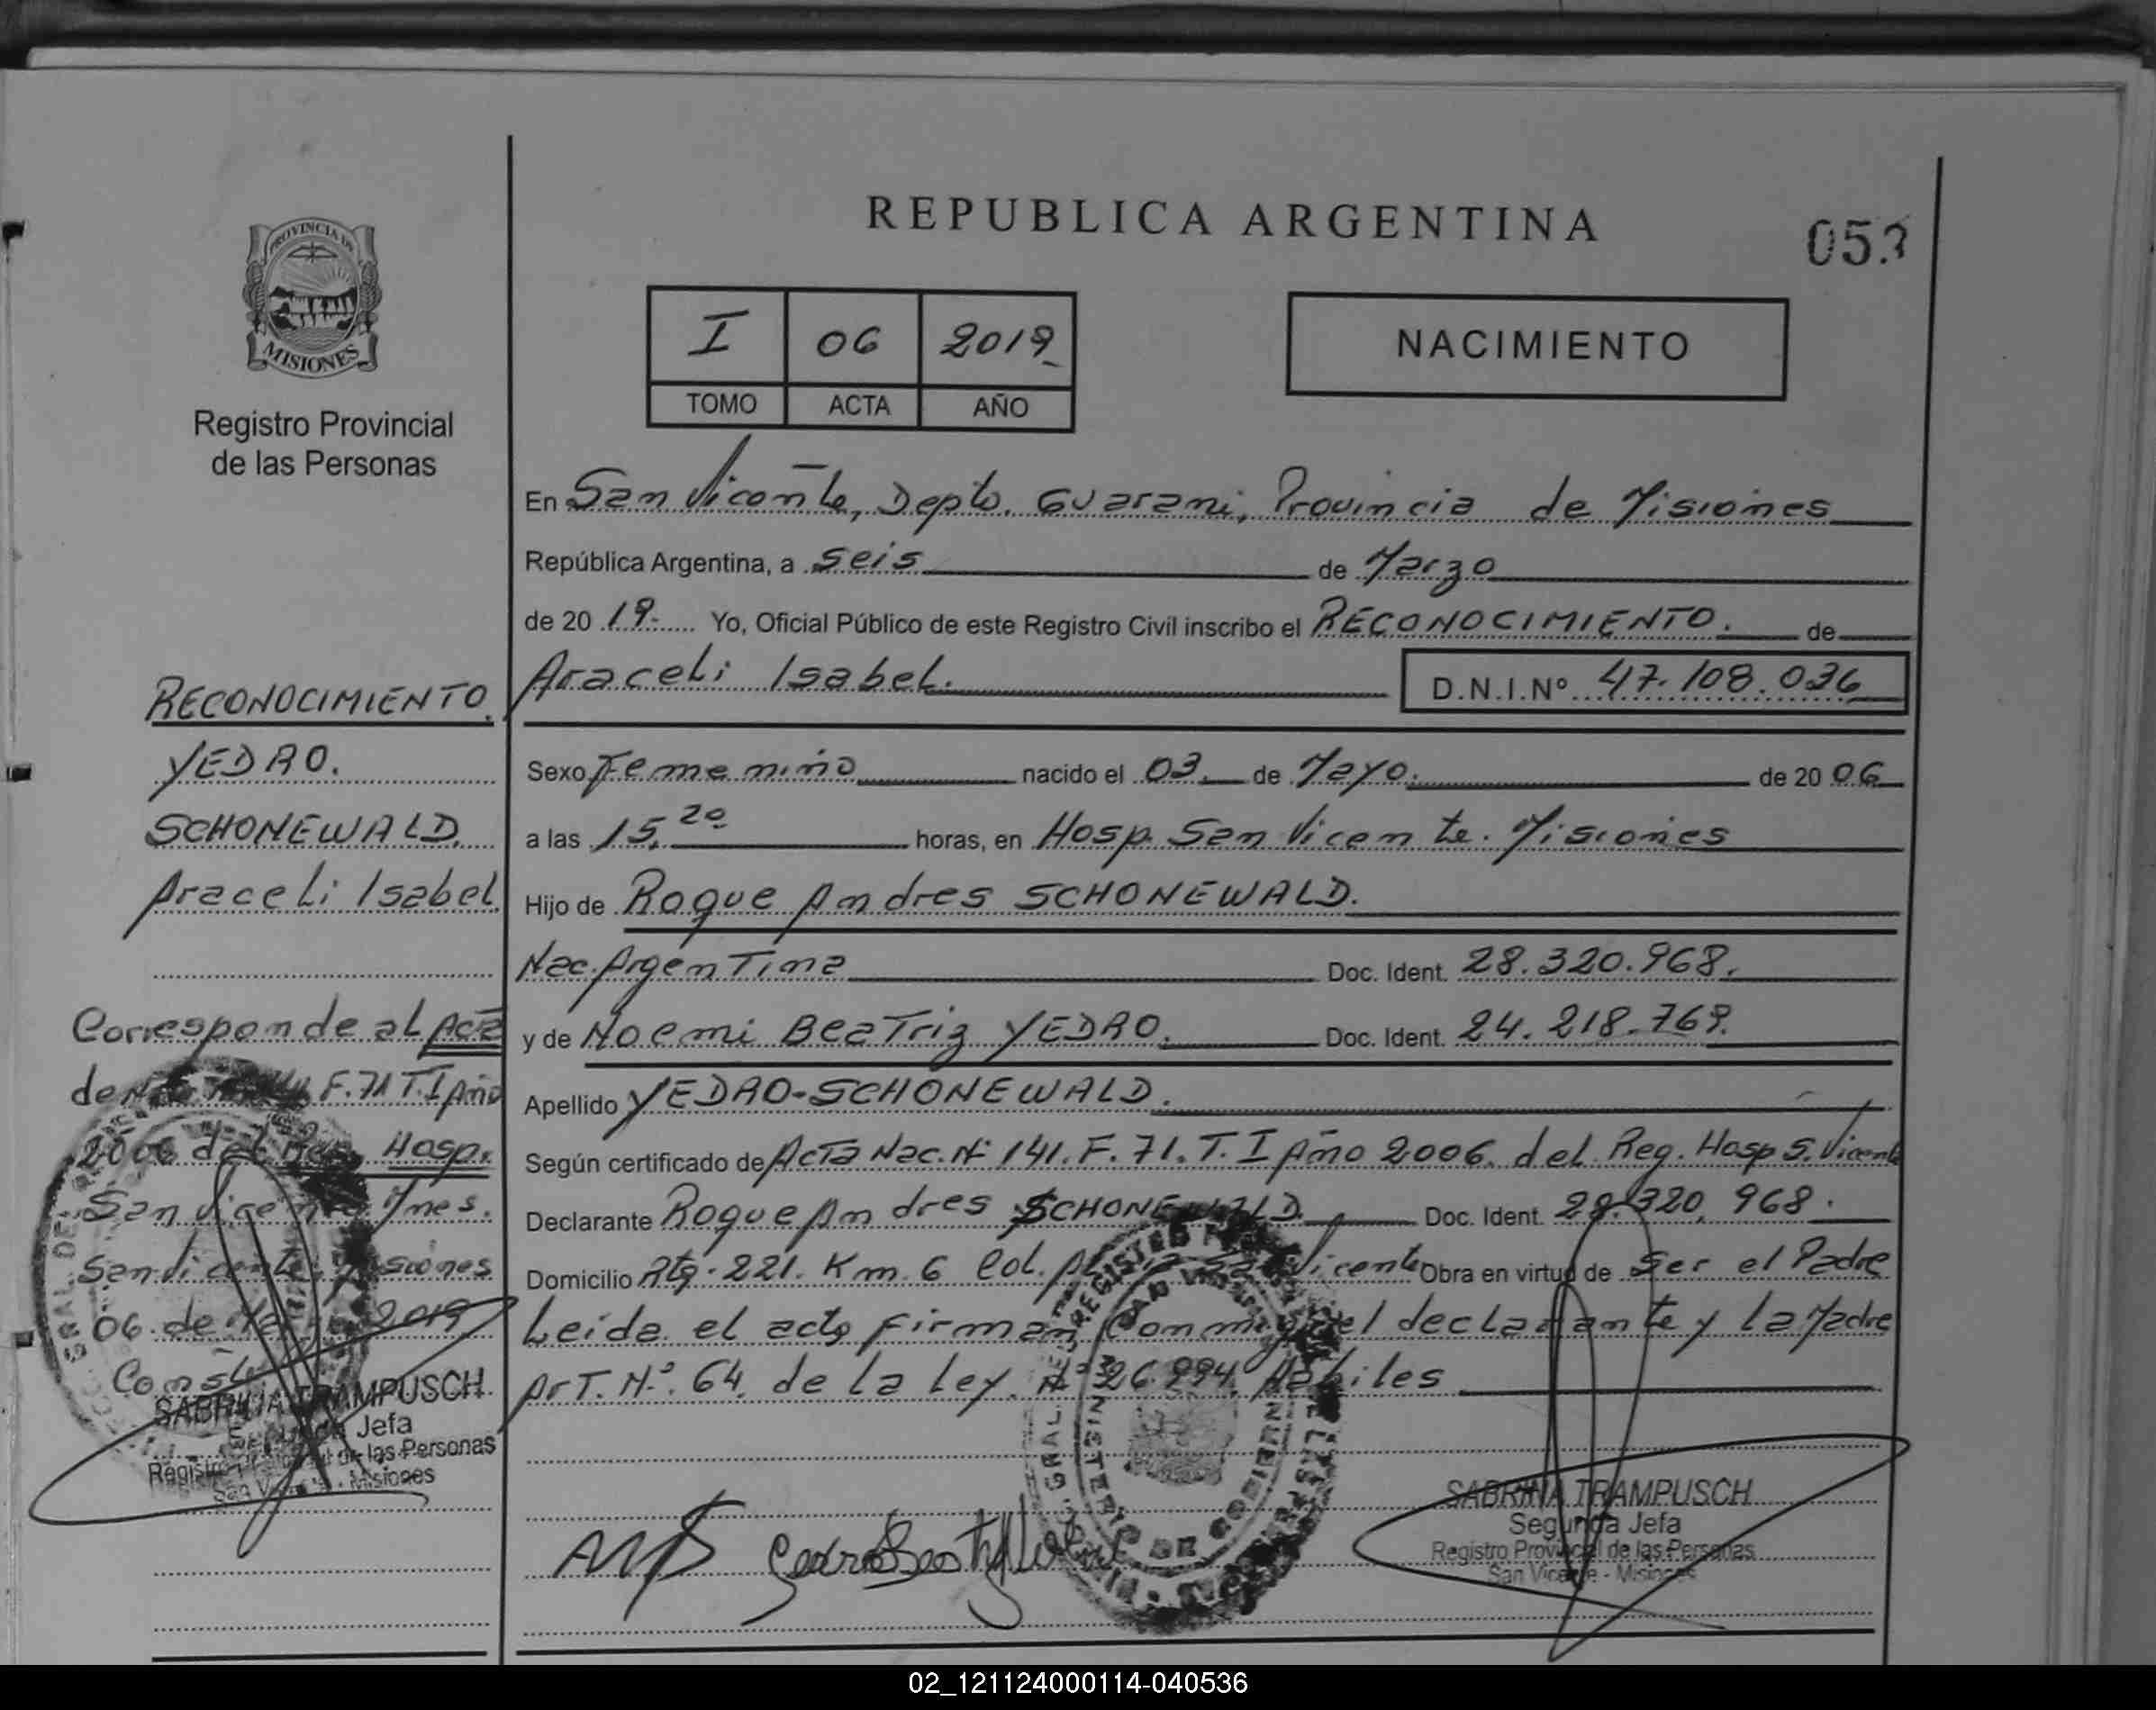 REPUBLICA ARGENTINA
053
PROVINCIA DE
MISIONES
Registro Provincial
de las Personas
I 06 2019
TOMO ACTA AÑO
NACIMIENTO
En San Vicente, Depto. Guarani, Provincia de Misiones
República Argentina, a seis de Marzo
de 2019 Yo, Oficial Público de este Registro Civil inscribo el RECONOCIMIENTO. de
Araceli Isabel. D.N.I.Nº 47.108.036
Sexo Femenino nacido el 03. de Mayo. de 2006
a las 15,20 horas, en Hosp. San Vicente. Misiones
Hijo de Roque Andres SCHONEWALD.
Nac. Argentina Doc. Ident. 28.320.968.
y de Noemi Beatriz YEDRO. Doc. Ident. 24.218.769.
Apellido YEDRO-SCHONEWALD.
Según certificado de Acta Nac. Nº 141. F. 71. T. I Año 2006. del Reg. Hosp S. Vicente
Declarante Roque Andres SCHONEWALD. Doc. Ident. 28.320.968.
Domicilio Rta. 221. Km. 6 Col. Vicente Obra en virtud de Ser el Padre
Leida el acta firman Conmigo el declarante y la Madre
Art. N.º 64. de la Ley. Nº 26.994. Habiles
SABRINA TRAMPUSCH
Segunda Jefa
Registro Provincial de las Personas
San Vicente - Misiones
RECONOCIMIENTO.
YEDRO.
SCHONEWALD.
Araceli Isabel
Corresponde al Acta
de F. 71 T. I Año
2006 del Reg. Hosp.
San Vicente Mnes.
San Vicente, Misiones
06 de Marzo 2019
Conste
SABRINA TRAMPUSCH
Segunda Jefa
Registro Provincial de las Personas
San Vicente - Misiones
02_121124000114-040536